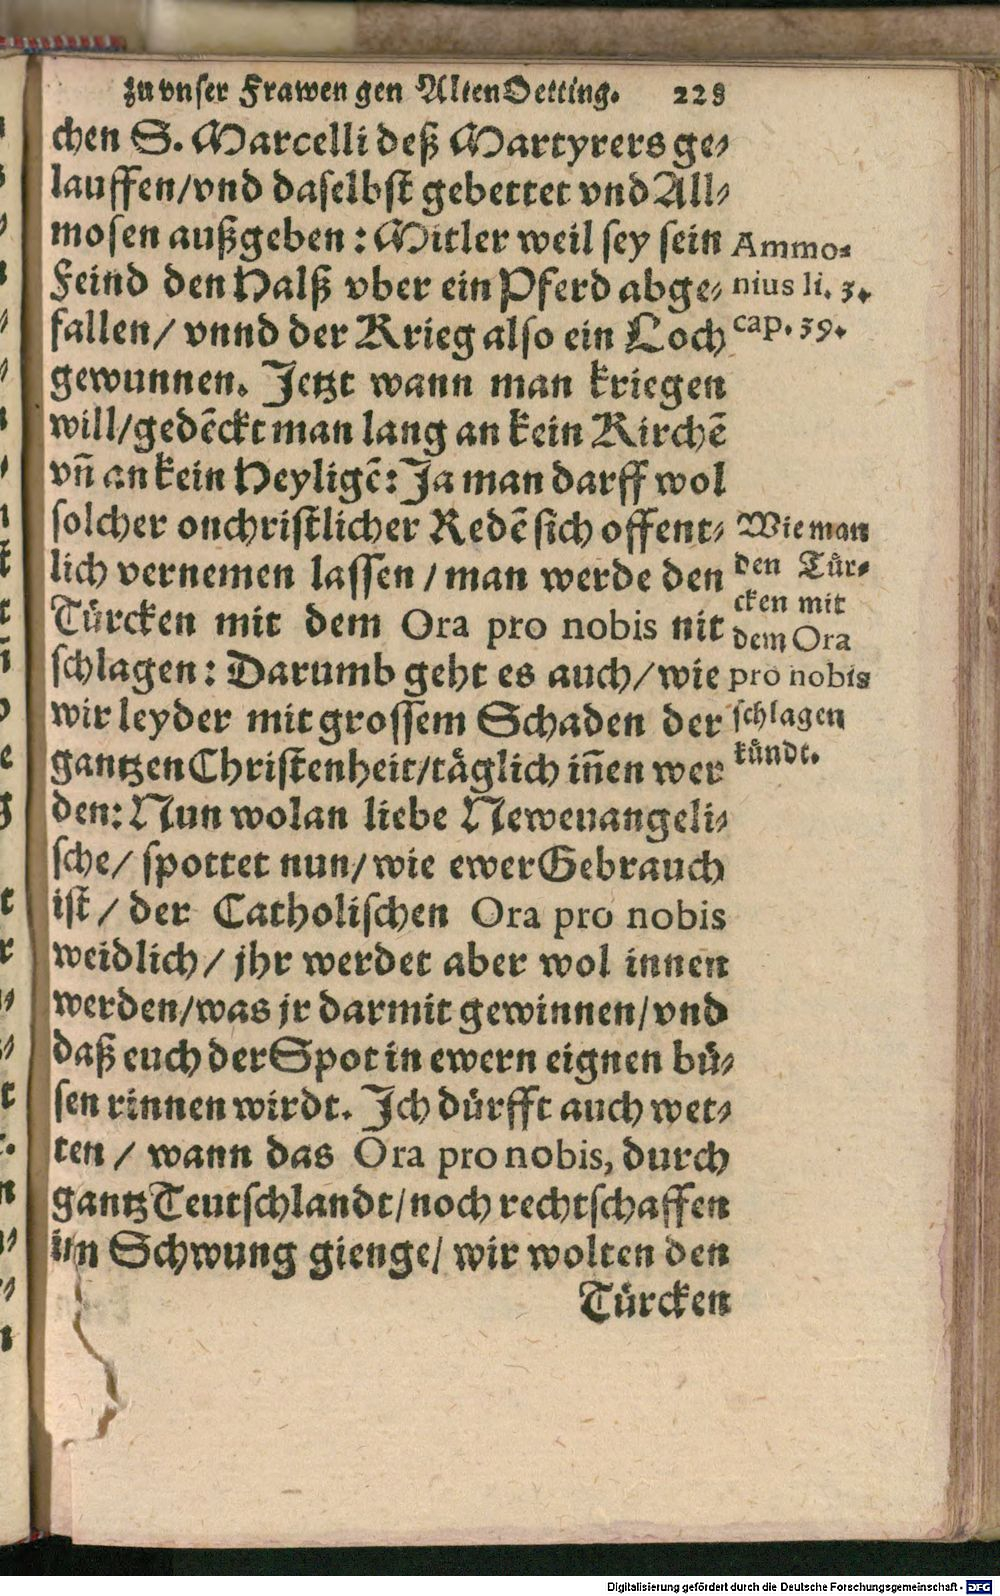 zu vnser Frawen gen Alten Oetting. 228
chen S. Marcelli deß Martyrers ge⸗
lauffen/vnd daselbst gebettet vnd All⸗
mosen außgeben : Mitler weil sey sein
Feind den Halß vber ein Pferd abge⸗
fallen/ vnnd der Krieg also ein Loch
gewunnen. Jetzt wann man kriegen
will/gedēckt man lang an kein Kirchē
vñ an kein Heyligē: Ja man darff wol
solcher onchristlicher Redē sich offent⸗
lich vernemen lassen /man werde den
Türcken mit dem Ora pro nobis nit
schlagen: Darumb geht es auch/wie
wir leyder mit grossem Schaden der
gantzen Christenheit/täglich iñen wer
den: Nun wolan liebe Neweuangeli⸗
sche/ spottet nun/wie ewer Gebrauch
ist/ der Catholischen Ora pro nobis
weidlich/ jhr werdet aber wol innen
werden/was jr darmit gewinnen/vnd
daß euch der Spot in ewern eignen bů⸗
sen rinnen wirdt. Ich dürfft auch wet⸗
ten / wann das Ora pro nobis, durch
gantz Teutschlandt/noch rechtschaffen
im Schwung gienge/ wir wolten den
Türcken
Ammo⸗
nius li. 3.
cap. 39.
Wie man
den Tür⸗
cken mit
dem Ora
pro nobis
schlagen
kündt.
Digitalisierung gefördert durch die Deutsche Forschungsgemeinschaft - DFG